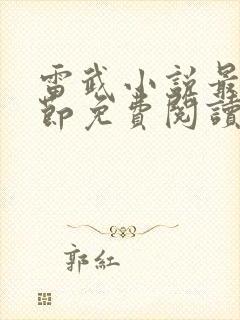 雷武小説最
節免費閱讀
郭紅